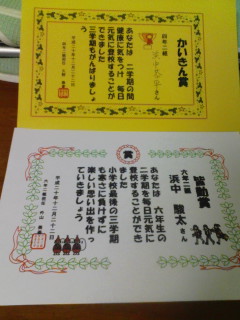 かいきん賞
四年二組
さん
あなたは 二学期の間
健康に気をつけ 毎日
元気に登校することが
できました
三学期もがんばりましょ
う
賞
皆勤賞
六年二組
浜中 駿太さん
あなたは 六年生の
二学期を毎日元気に
登校することができ
ました
小学校最後の三学期
も寒さに負けずに
楽しい思い出を作っ
ていきましょう
平成二十年十二月二十二日